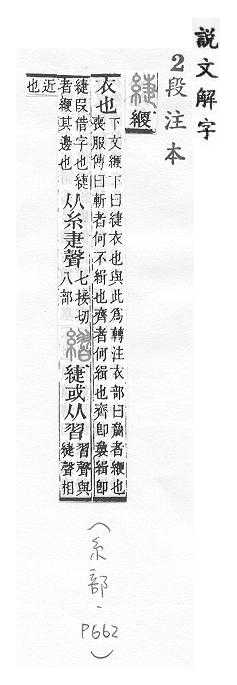 說文解字
2段注本
緁 緶
衣也 下文緶下曰緁衣也與此爲轉注衣部曰䶒者緶也
喪服傳曰斬者何不緝也齊者何緝也齊卽䶒緝卽
緁叚借字也緁
者緶其邊也 从糸疌聲 七接切
八部 䌌 緁或从習 習聲與
緁聲相
近也
(糸部、P662)